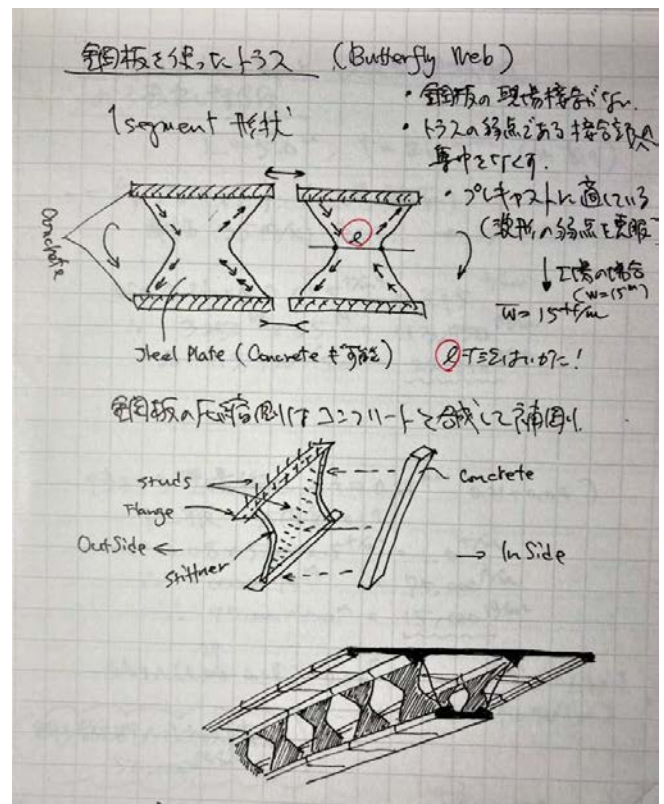 鋼板を使ったトラス (Butterfly Web)
1 segment 形状
・鋼板の現場接合がない.
・トラスの弱点である接合部への
集中をなくす.
・プレキャストに適している
(波形の弱点を克服)
↓ 工場の場合
(W=15m)
W=15tf/m
Concrete
ℓ
Steel Plate (Concrete も可能)
ℓ寸法はいかに!
鋼板の圧縮側はコンクリートを合成して補剛.
studs
Flange
OutSide ←
Stiffner
Concrete
→ InSide